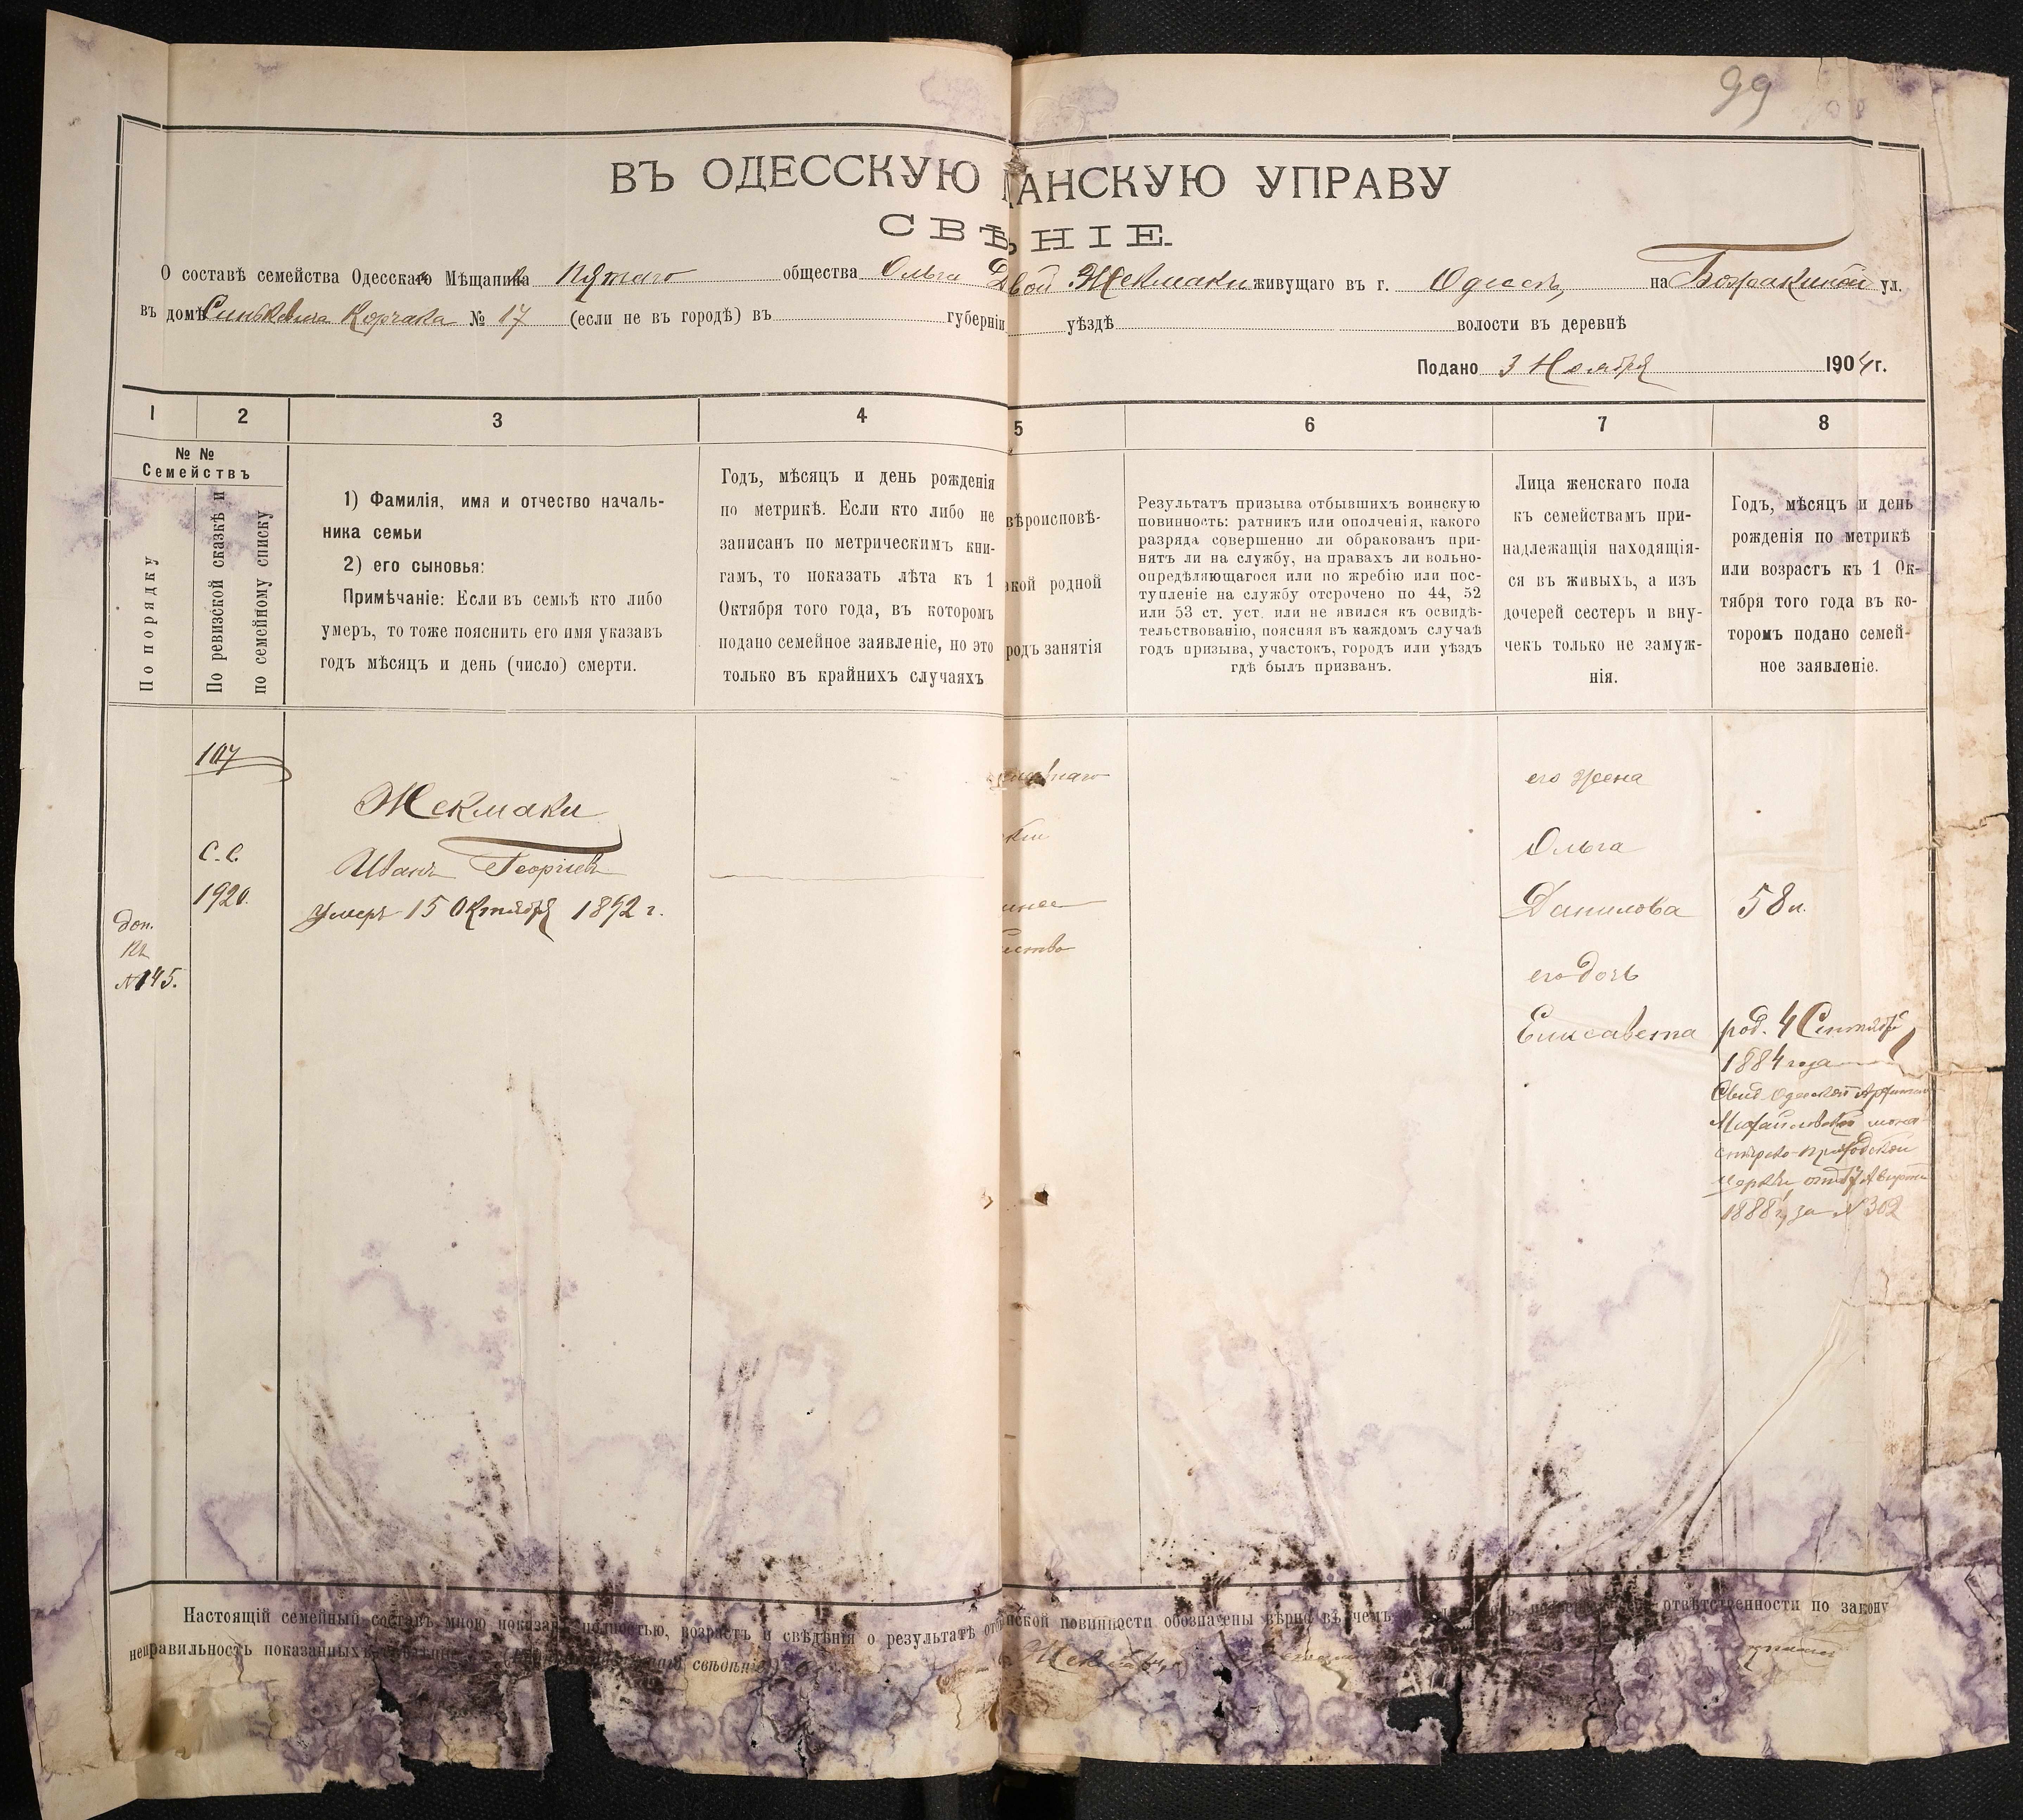 99
ВЪ ОДЕССКУЮ АНСКУЮ УПРАВУ
СВѢ НІЕ.
О составѣ семейства Одесскаго Мѣщанина Пятаго общества Ольга вой Жекмаки живущаго въ г. Одессѣ, на ул.
въ домѣ Синькевича Корчака № 17 (если не въ городѣ) въ губерніи уѣздѣ волости въ деревнѣ
Подано 3 Ноября 1904 г.
1 2 3 4 5 6 7 8
№ №
Семействъ
По порядку
По ревизской сказкѣ и
по семейному списку
1) Фамилія, имя и отчество началь-
ника семьи
2) его сыновья:
Примѣчаніе: Если въ семьѣ кто либо
умеръ, то тоже пояснить его имя указавъ
годъ мѣсяцъ и день (число) смерти.
Годъ, мѣсяцъ и день рожденія
по метрикѣ. Если кто либо не
записанъ по метрическимъ кни-
гамъ, то показать лѣта къ 1
Октября того года, въ которомъ
подано семейное заявленіе, но это
только въ крайнихъ случаяхъ
вѣроисповѣ-
кой родной
родъ занятія
Результатъ призыва отбывшихъ воинскую
повинность: ратникъ или ополченія, какого
разряда совершенно ли обракованъ при-
нятъ ли на службу, на правахъ ли вольно-
опредѣляющагося или по жребію или пос-
тупленіе на службу отсрочено по 44, 52
или 53 ст. уст. или не явился къ освидѣ-
тельствованію, поясняя въ каждомъ случаѣ
годъ призыва, участокъ, городъ или уѣздъ
гдѣ былъ призванъ.
Лица женскаго пола
къ семействамъ при-
надлежащія находящія-
ся въ живыхъ, а изъ
дочерей сестеръ и вну-
чекъ только не замуж-
нія.
Годъ, мѣсяцъ и день
рожденія по метрикѣ
или возрастъ къ 1 Ок-
тября того года въ ко-
торомъ подано семей-
ное заявленіе.
107
С. С.
1920.
доп.
къ
№145.
Жекмаки
Иванъ Георгіевъ
умеръ 15 Октября 1892 г.
его жена
Ольга
Данилова 58 л.
его дочь
Елисавета род. 4 Сентября
1884 года
Свид. Одесской
Михайловской мона-
стырско-приходской
церкви отъ 17 Августа
1888 г. за № 302
Настоящій семейный составъ мною показанъ полностью, возрастъ и свѣдѣнія о результатѣ отб нской повинности обозначены вѣрно въ чемъ отвѣтственности по закону
неправильность показанныхъ свѣдѣніе)
Жекмаки